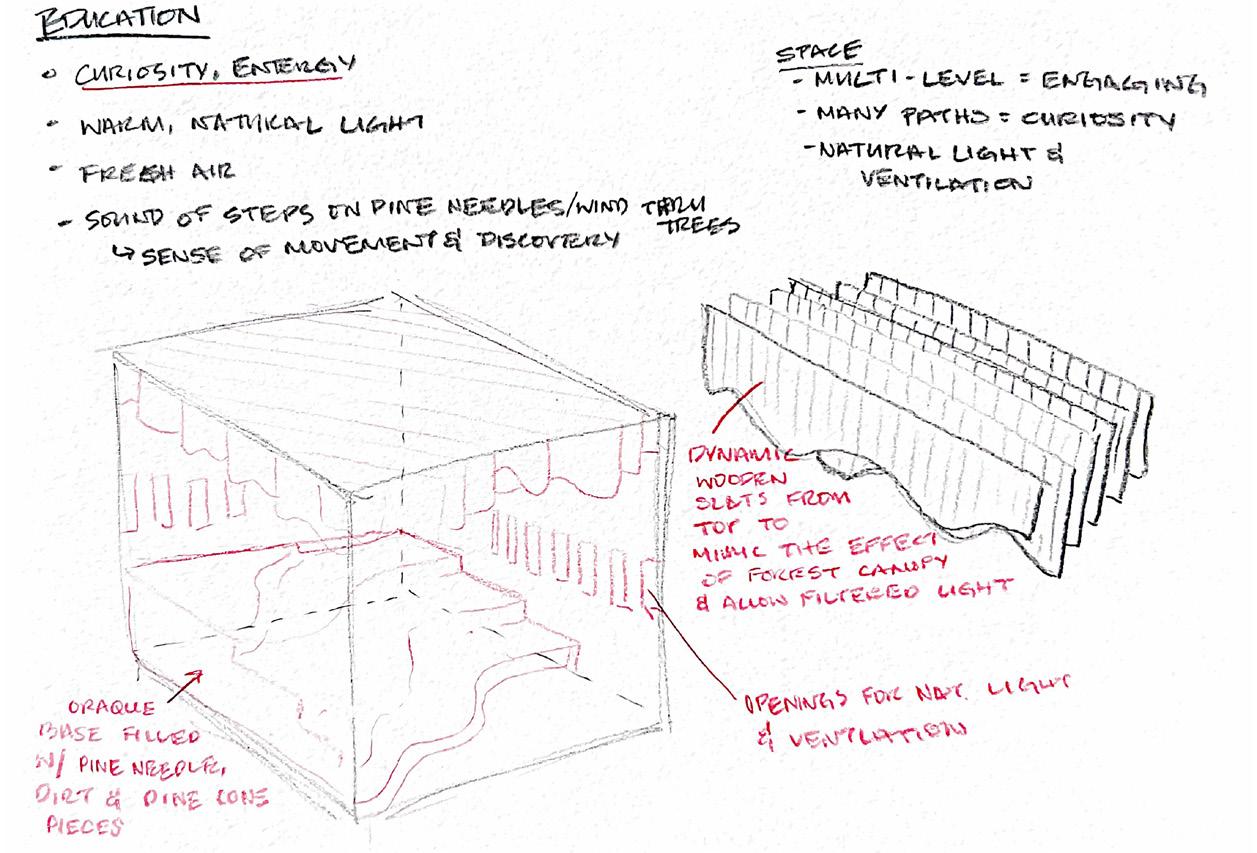 EDUCATION
CURIOSITY, ENERGY
- WARM, NATURAL LIGHT
- FRESH AIR
- SOUND OF STEPS ON PINE NEEDLES/WIND THRU
TREES
↳ SENSE OF MOVEMENT & DISCOVERY
SPACE
- MULTI-LEVEL = ENGAGING
- MANY PATHS = CURIOSITY
- NATURAL LIGHT &
VENTILATION
DYNAMIC
WOODEN
SLATS FROM
TOP TO
MIMIC THE EFFECT
OF FOREST CANOPY
& ALLOW FILTERED LIGHT
OPENINGS FOR NAT. LIGHT
& VENTILATION
OPAQUE
BASE FILLED
W/ PINE NEEDLE,
DIRT & PINE CONE
PIECES